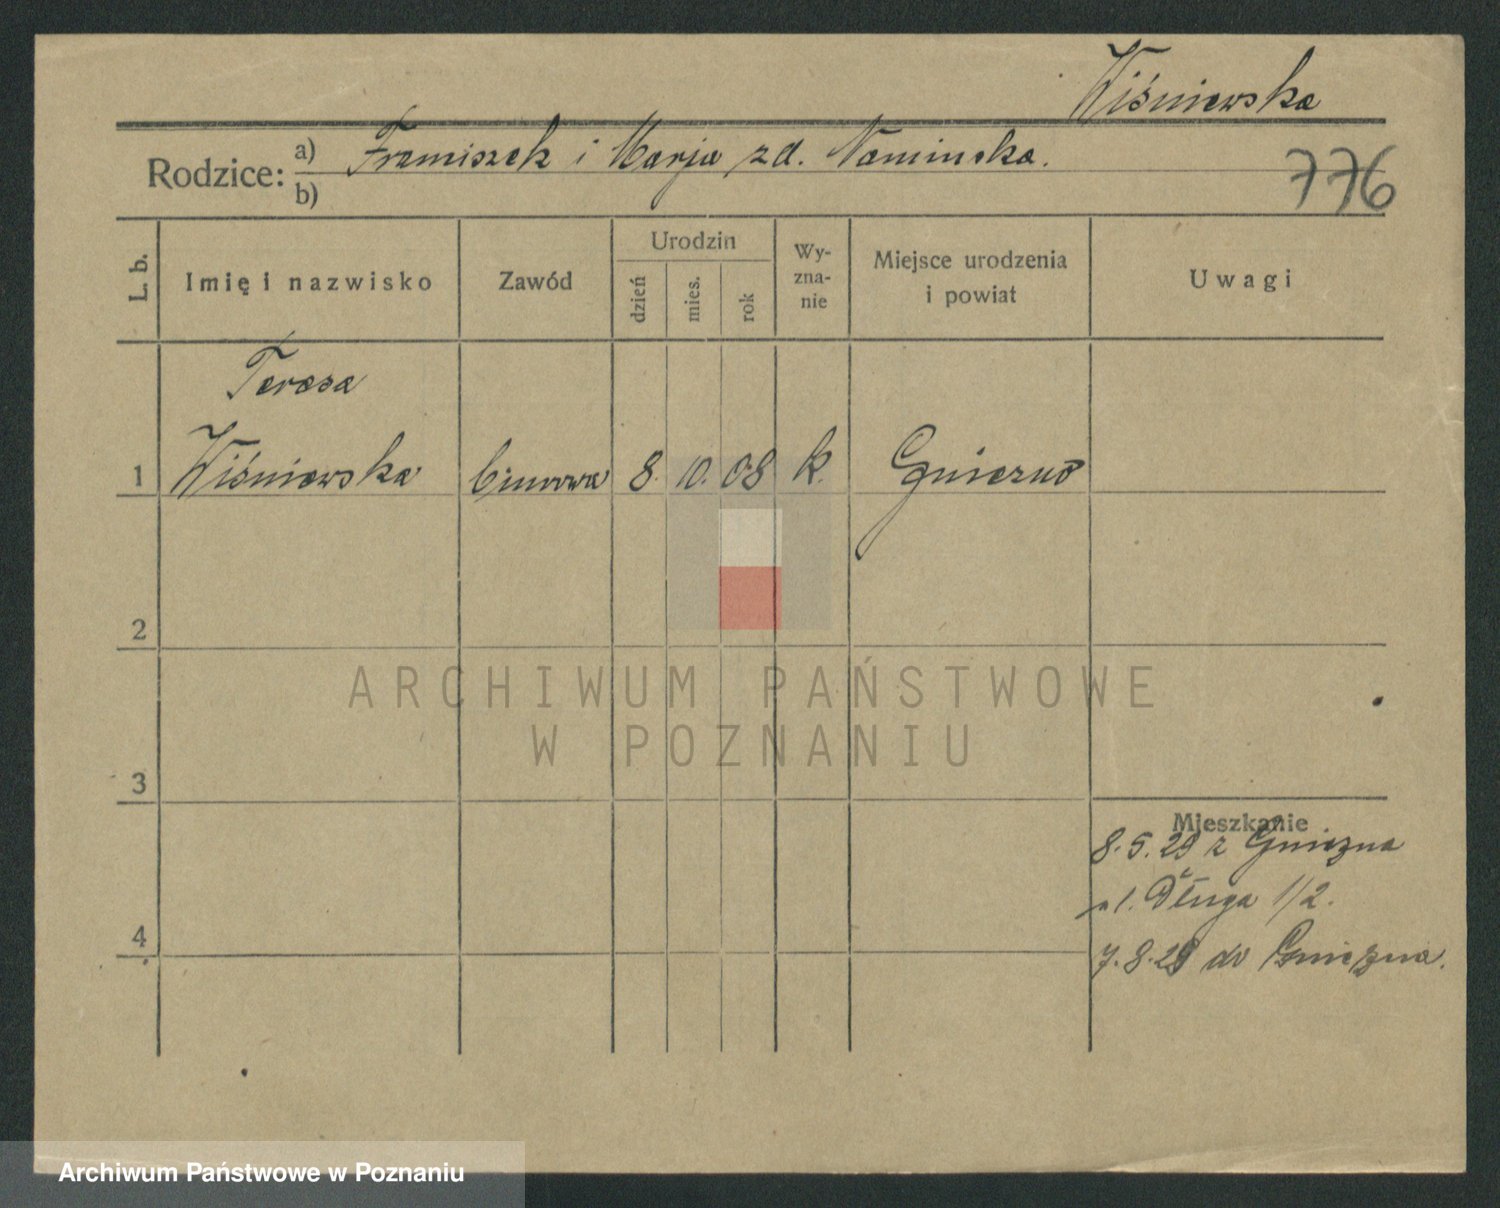 Wiśniewska
Rodzice: a) Franciszek i Marja zd.
b)
776
L. b.
Imię i nazwisko
Zawód
Urodzin
dzień
mies.
rok
Wy-
zna-
nie
Miejsce urodzenia
i powiat
Uwagi
Teresa
1 Wiśniewska biurowa 8. 10. 08 k. Gniezno
2
3
4
Mieszkanie
8.5.29 z Gniezna
ul. Długa 1/2.
7.8.29 do Gniezna.
ARCHIWUM PAŃSTWOWE
W POZNANIU
Archiwum Państwowe w Poznaniu